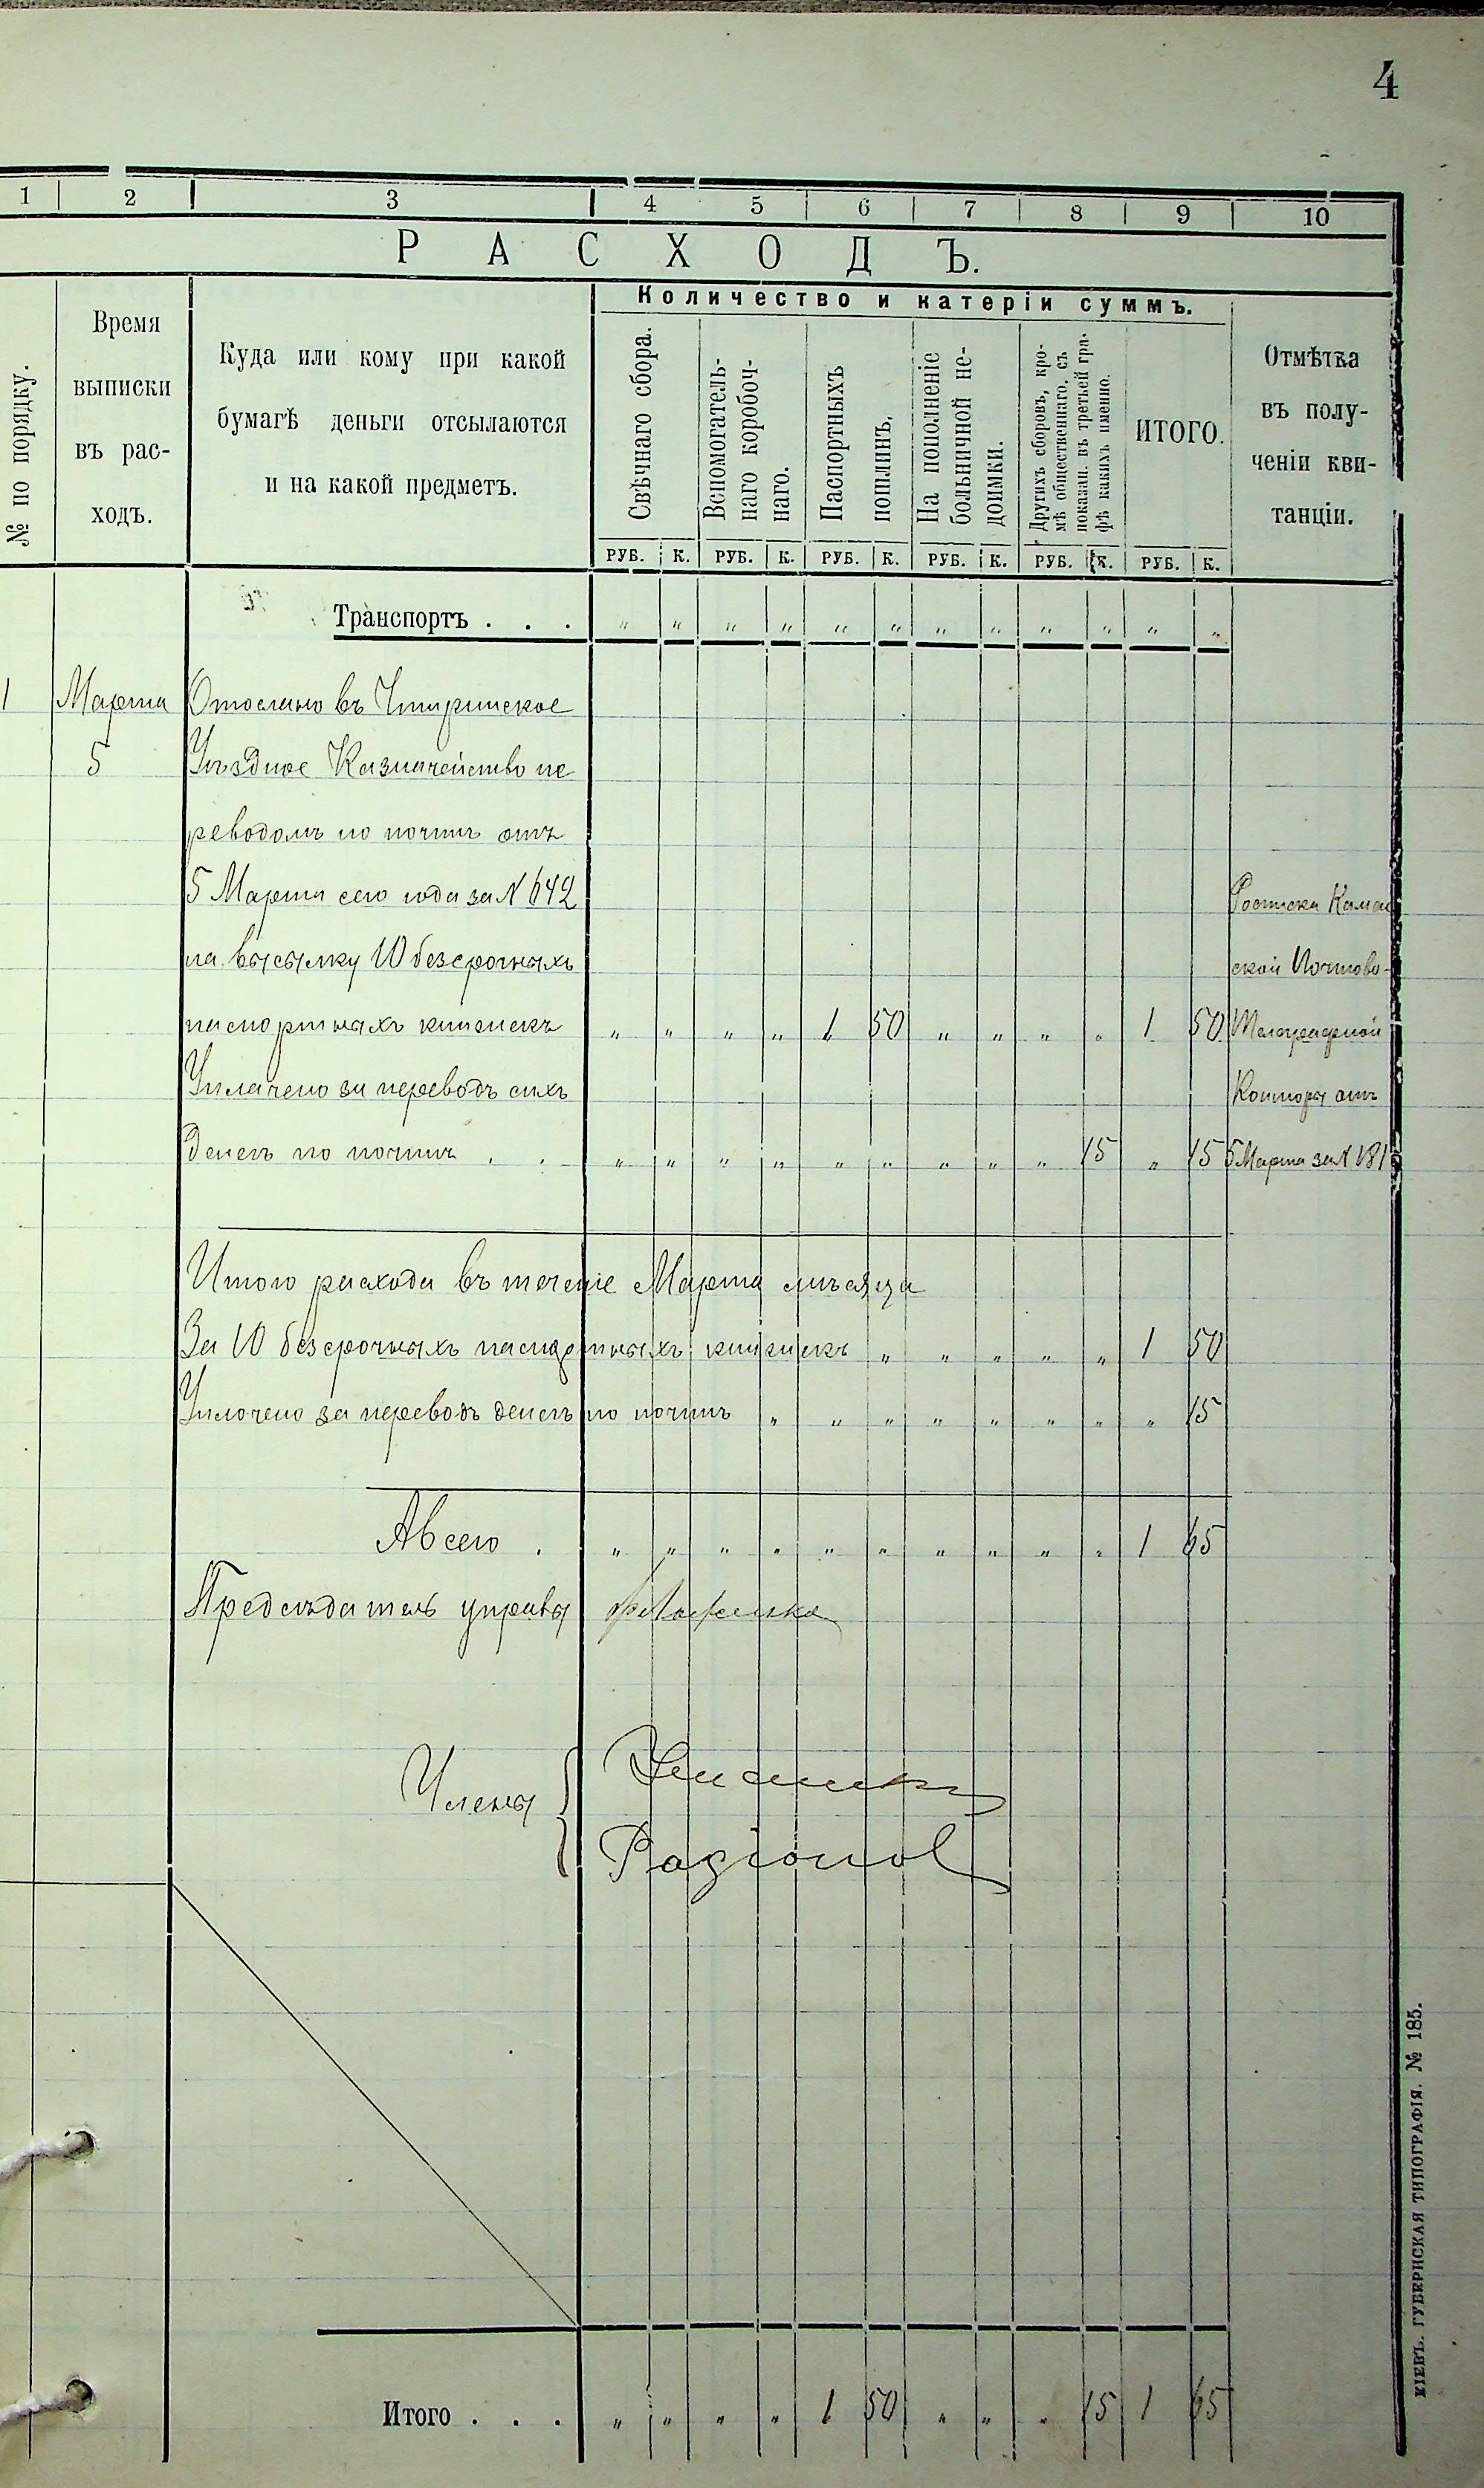 4
1 2 3 4 5 6 7 8 9 10
РАСХОДЪ.
№ по порядку.
Время
выписки
въ рас-
ходъ.
Куда или кому при какой
бумагѣ деньги отсылаются
и на какой предметъ.
Количество и катеріи суммъ.
Свѣчнаго сбора.
Вспомогатель-
наго коробоч-
наго.
Паспортныхъ
пошлинъ.
На пополненіе
больничной не-
доимки.
Другихъ сборовъ, кро-
мѣ общественнаго, съ
показан. въ третьей гра-
фѣ какихъ именно.
ИТОГО.
Отмѣтка
въ полу-
ченіи кви-
танціи.
РУБ. К. РУБ. К. РУБ. К. РУБ. К. РУБ. К. РУБ. К.
Транспортъ . . . " " " " " " " " " " " "
1 Марта Отослано въ Чигиринское
5 Уѣздное Казначейство пе
реводомъ по почтѣ отъ
5 Марта сего года за N 642
на высылку 10 безсрочныхъ
паспортныхъ книжекъ " " " " 1 50 " " " " 1 50
Уплачено за переводъ сихъ
денегъ по почтѣ . . " " " " " " " " " 15 " 15
Росписка Камен
ской Почтово-
Телеграфной
Конторы отъ
5 Марта за N 181
Итого расхода въ теченіе Марта мѣсяца
За 10 безсрочныхъ паспортныхъ книжекъ " " " " " 1 50
Уплочено за переводъ денегъ по почтѣ " " " " " " " " 15
А всего . " " " " " " " " " " 1 65
Предсѣдатель управы
Члены
Итого . . . " " " " 1 50 " " " 15 1 65
КІЕВЪ. ГУБЕРНСКАЯ ТИПОГРАФІЯ. № 185.